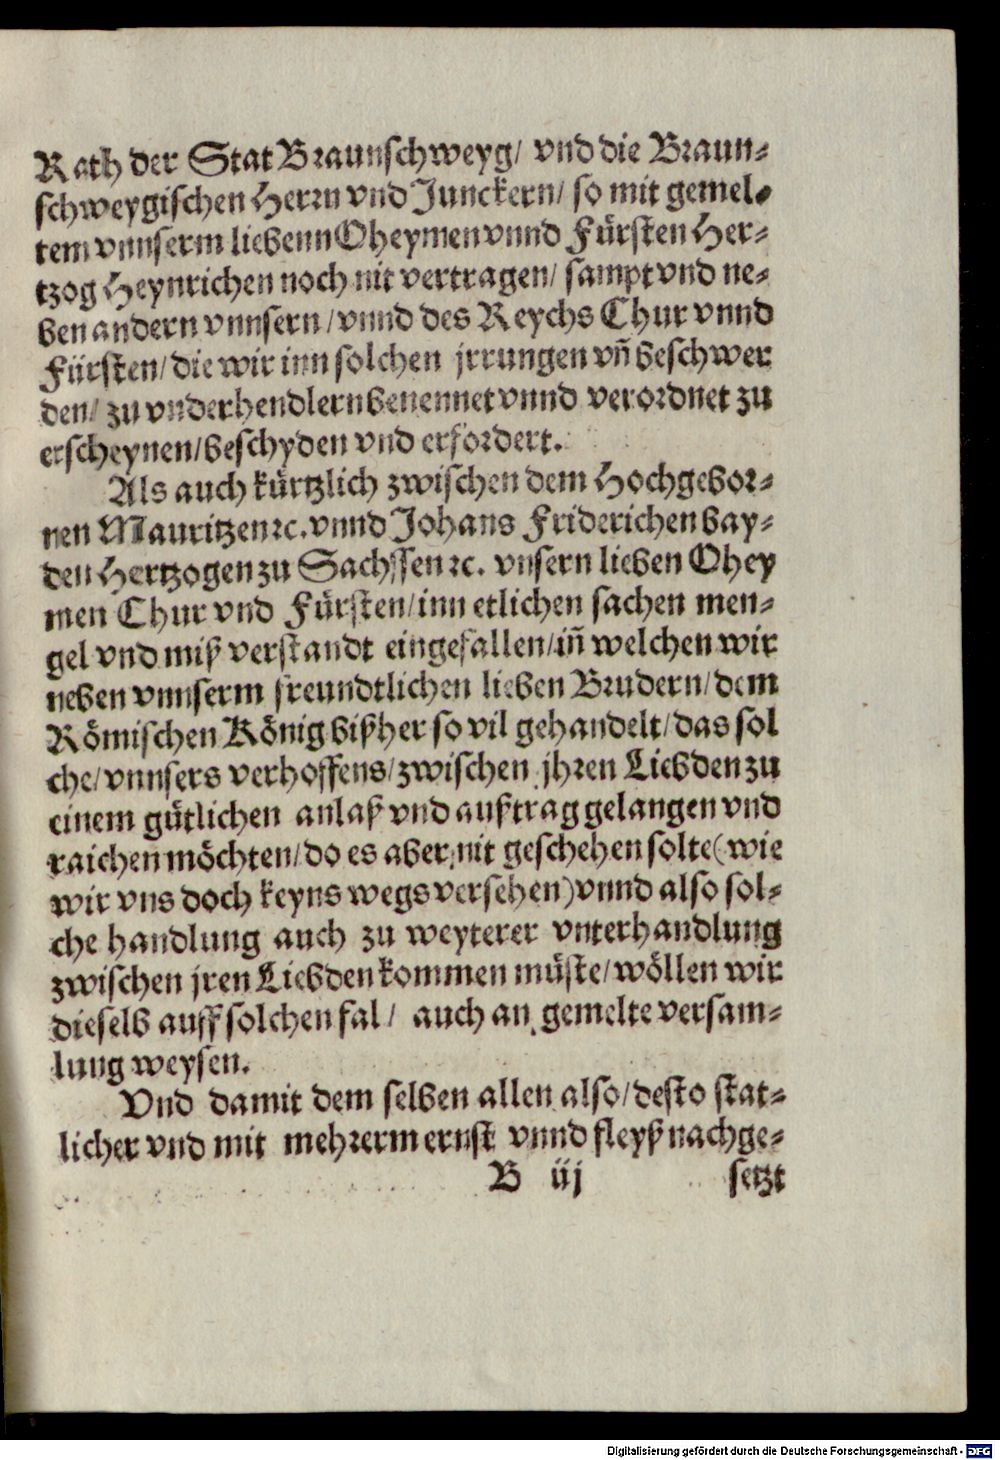 Rath der Stat Braunschweyg/ vnd die Braun⸗
schweygischen Herrn vnd Junckern/ so mit gemel⸗
tem vnnserm liebenn Oheymen vnnd Fürsten Her⸗
tzog Heynrichen noch nit vertragen/ sampt vnd ne⸗
ben andern vnnsern/ vnnd des Reychs Chur vnnd
Fürsten/ die wir inn solchen jrrungen vñ beschwer
den/ zu vnderhendlern benennet vnnd verordnet zu
erscheynen/ beschyden vnd erfordert.
Als auch kürtzlich zwischen dem Hochgebor⸗
nen Mauritzen ꝛc. vnnd Johans Friderichen bay⸗
den Hertzogen zu Sachssen ꝛc. vnsern lieben Ohey
men Chur vnd Fürsten/ inn etlichen sachen men⸗
gel vnd miß verstandt eingefallen/ iñ welchen wir
neben vnnserm freundtlichen lieben Brudern/ dem
Römischen König bißher so vil gehandelt/ das sol
che/ vnnsers verhoffens/ zwischen jhren Liebden zu
einem gütlichen anlaß vnd außtrag gelangen vnd
raichen möchten/ do es aber nit geschehen solte (wie
wir vns doch keyns wegs versehen) vnnd also sol⸗
che handlung auch zu weyterer vnterhandlung
zwischen jren Liebden kommen müste/ wöllen wir
dieselb auff solchen fal/ auch an gemelte versam⸗
lung weysen.
Vnd damit dem selben allen also/ desto stat⸗
licher vnd mit mehrerm ernst vnnd fleyß nachge⸗
B iij setzt
Digitalisierung gefördert durch die Deutsche Forschungsgemeinschaft - DFG